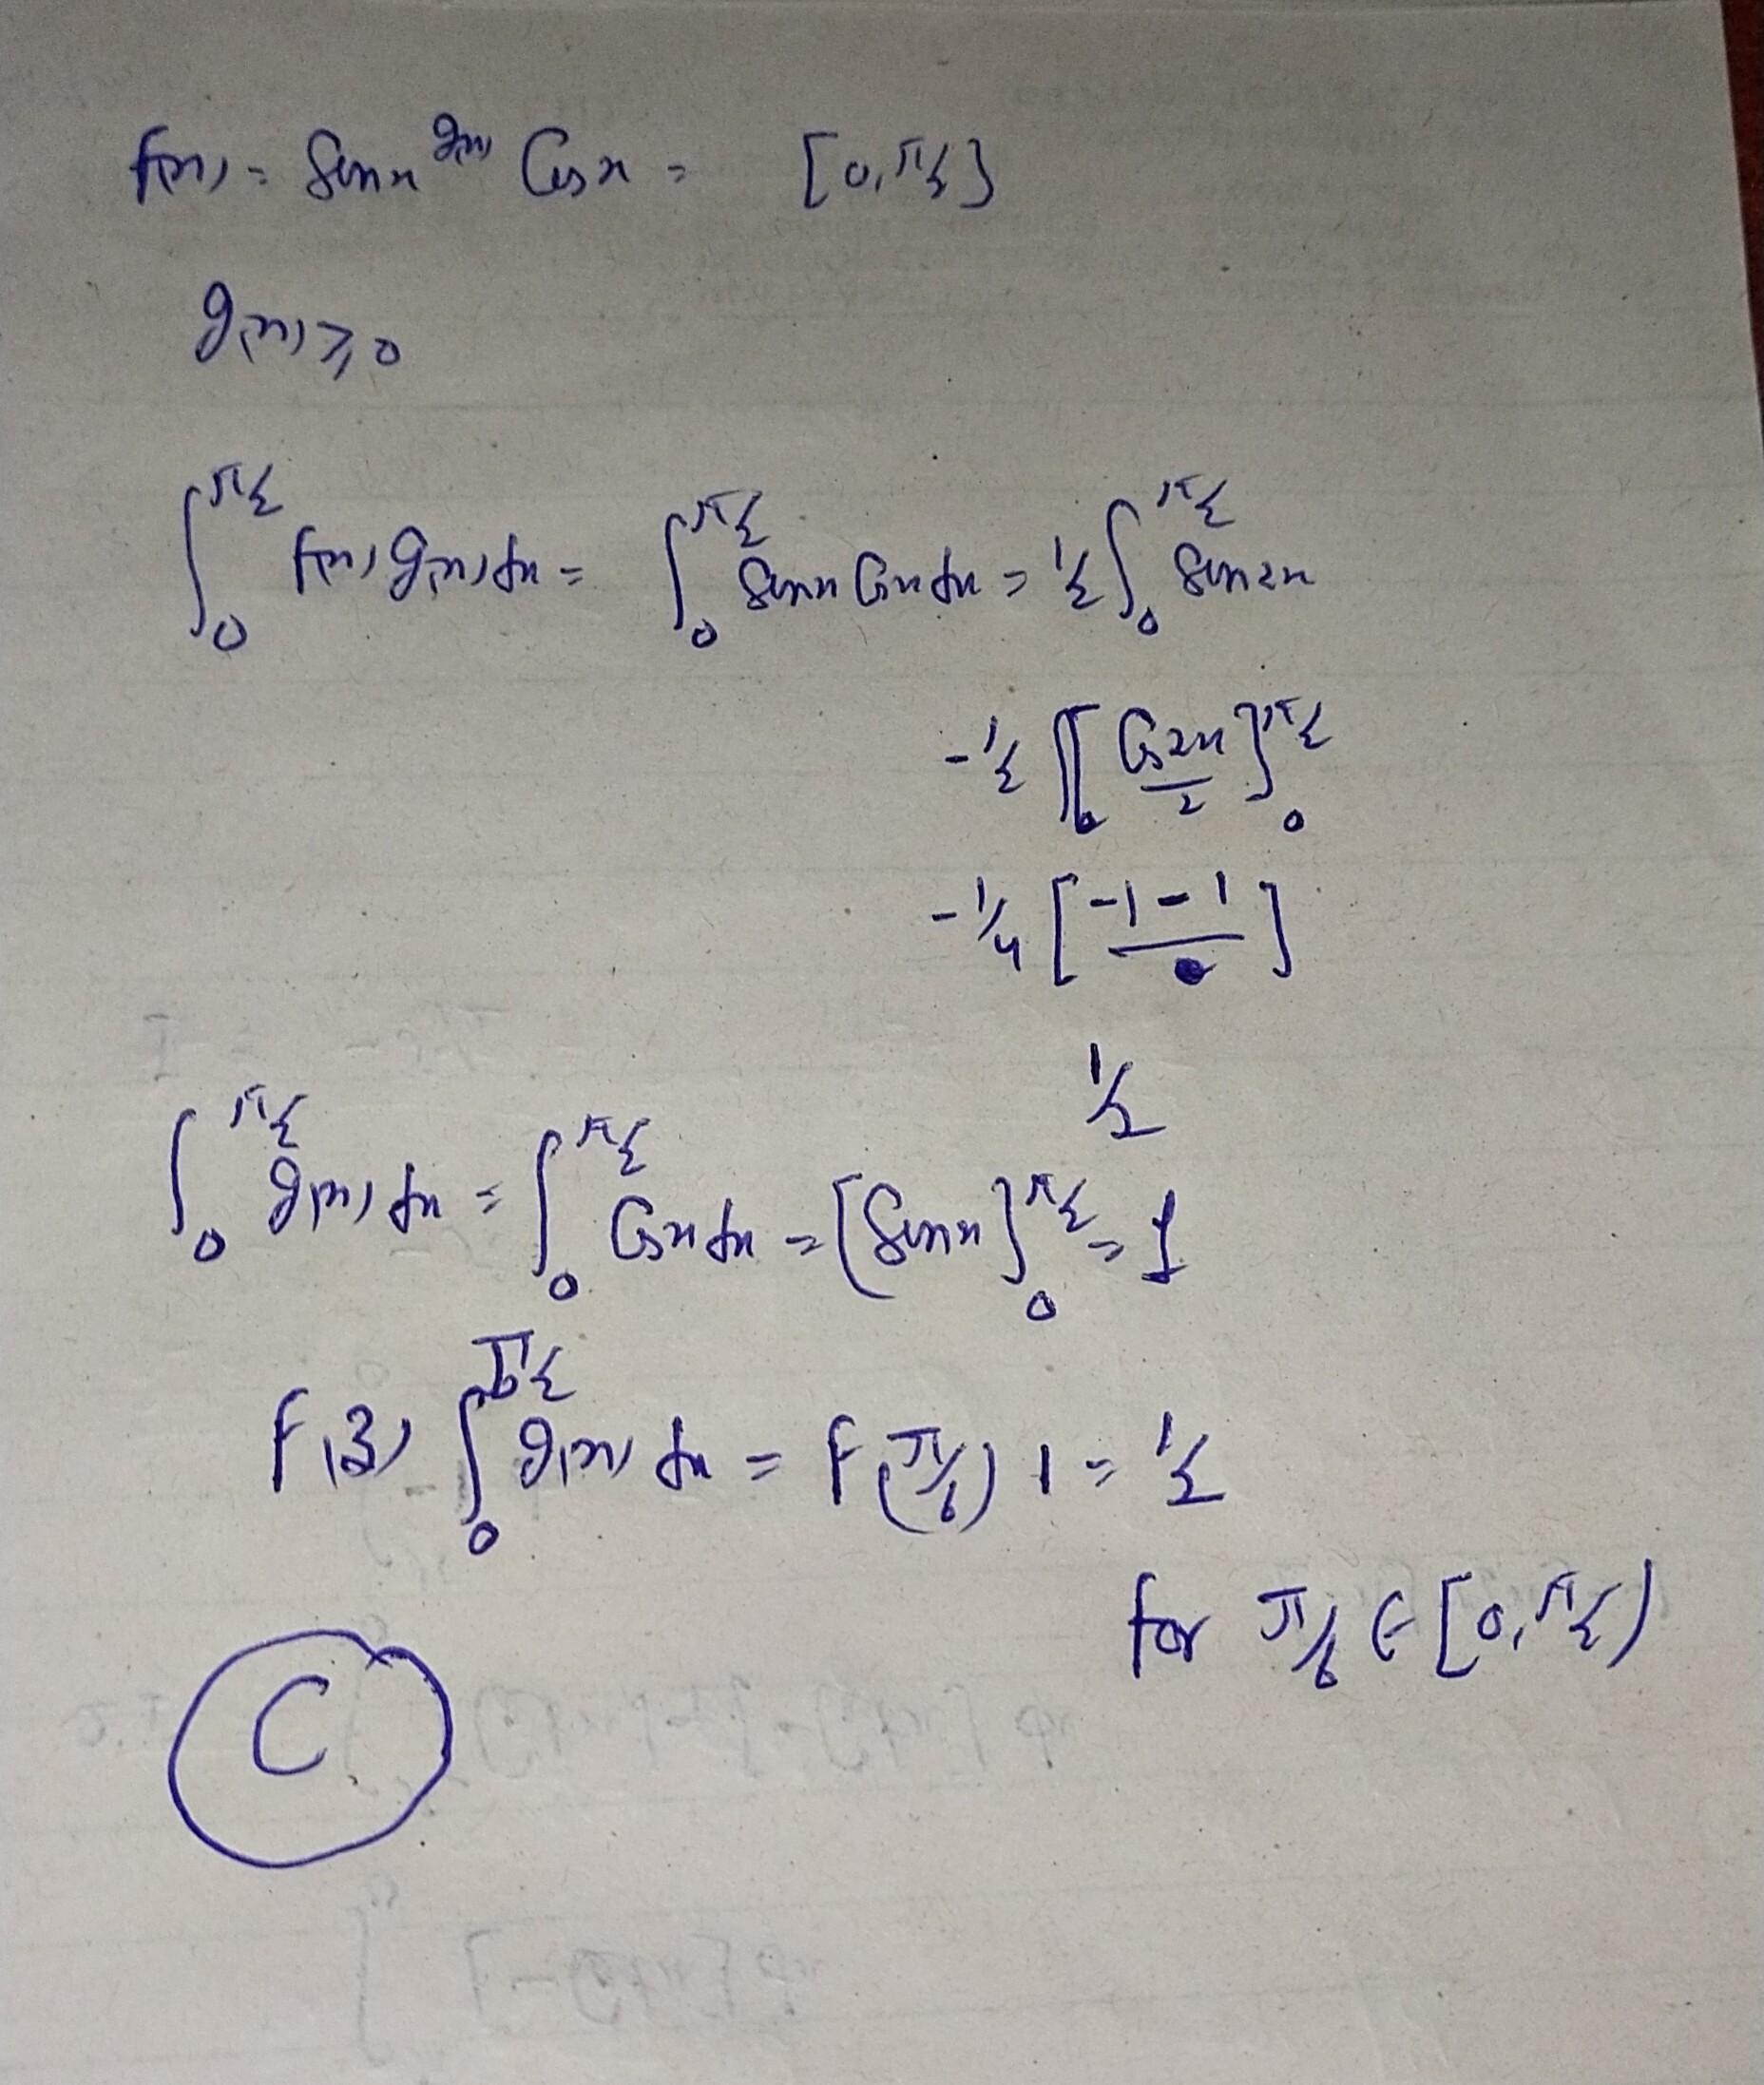 f(x) = Sinx g(x) Cosx = [0, π/2]
g(x) ≥ 0
∫₀^π/2 f(x) g(x) dx = ∫₀^π/2 Sinx Cosx dx = 1/2 ∫₀^π/2 Sin2x
-1/2 [Cos2x/2]₀^π/2
-1/4 [-1-1]
1/2
∫₀^π/2 g(x) dx = ∫₀^π/2 Cosx dx = [Sinx]₀^π/2 = 1
f(ξ) ∫₀^π/2 g(x) dx = f(π/6) 1 = 1/2
for π/6 ∈ [0, π/2)
C